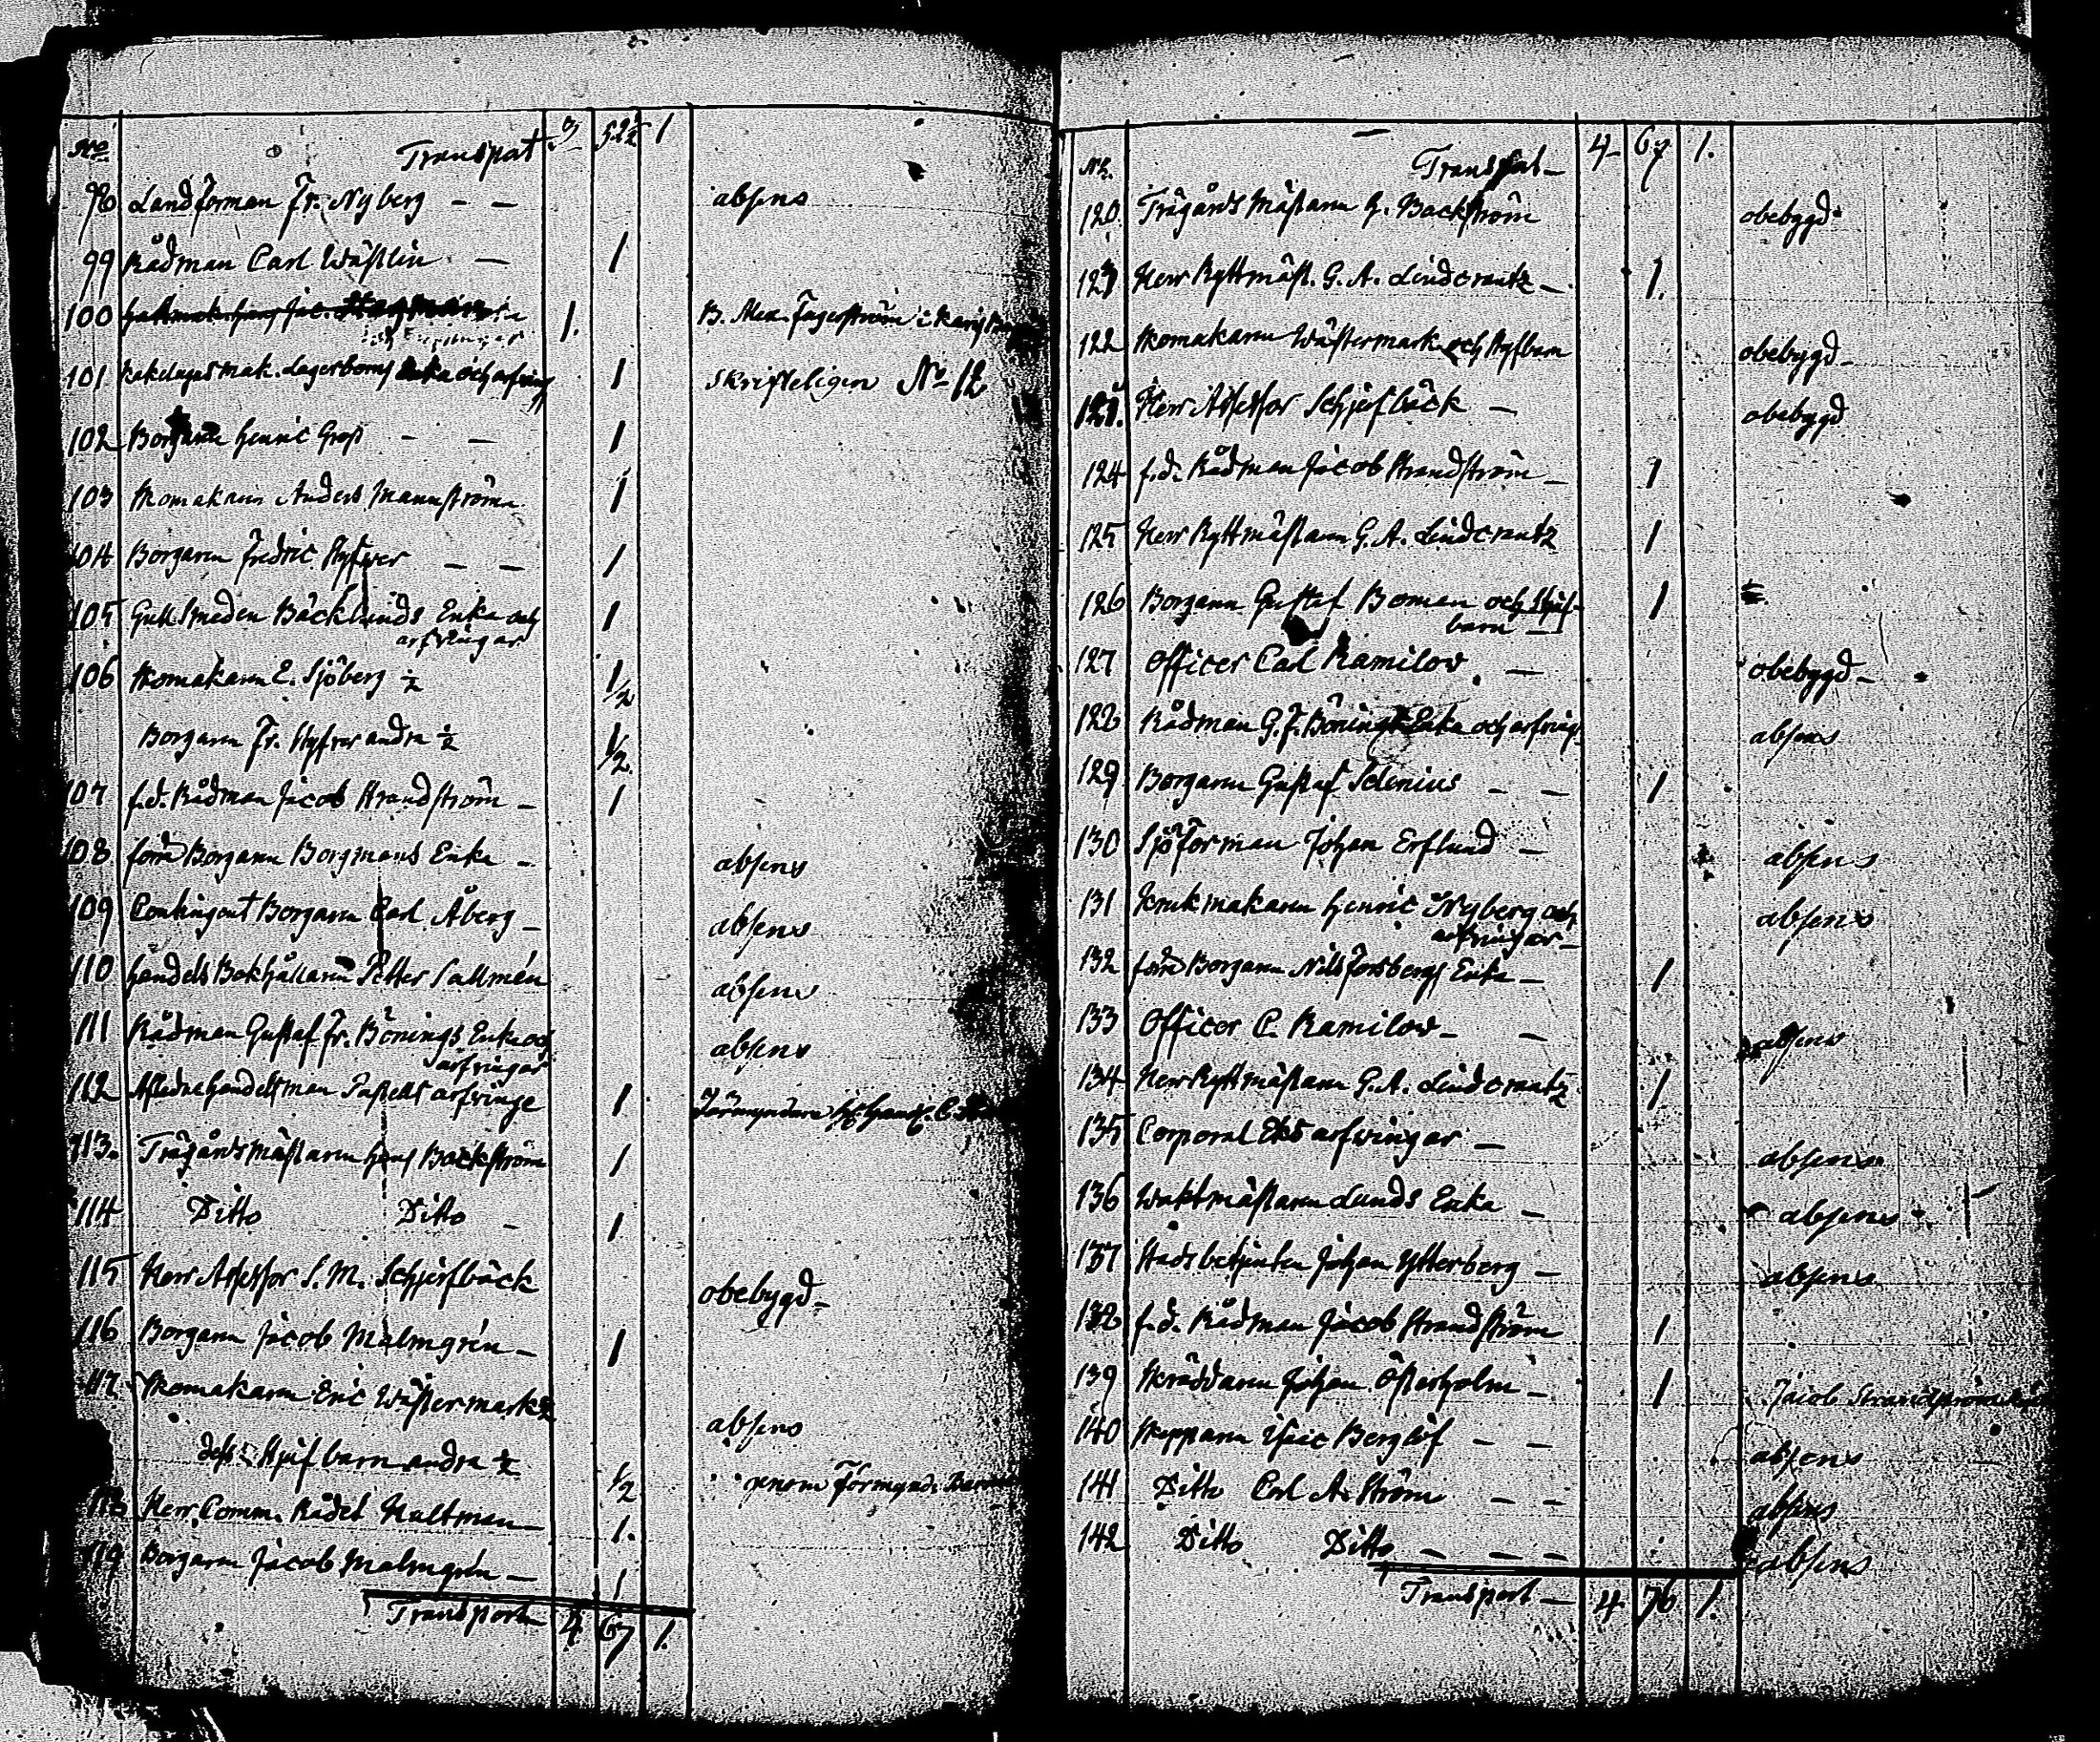 No Transport 3 52½ 1
98 Landtorman Fr. Nyberg — — absens
99 Rådman Carl Wästlin — 1
100 1. B. Alex. Fagerström i
101 Kakelugnsmak. Lagerboms Enka och arfving 1 skrifteligen No 12
102 Borgaren Henric Grop — — 1
103 Skomakaren Anders Mannström 1
104 Borgaren Fredric Styfver — — 1
105 Gullsmeden Bäcklunds Enka och 1
arfvingar
106 Skomakaren C. Sjöberg ½ ½
Borgaren Fr. Styfver andra ½ ½.
107 f.d. Rådman Jacob Strandström — 1
108 förre Borgaren Borgmans Enka — absens
109 Contingent Borgaren Carl Åberg — absens
110 Handels Bokhållaren Petter Sallmén absens
111 Rådman Gustaf Fr. Bönings Enka och absens
arfvingar
112 Aflidne Handelsman arfvinge 1 Förmyndare
113. Trägårds Mästaren Hans Backström 1
114 Ditto Ditto — 1.
115 Herr Assessor S. M. Schjerfbäck obebygd —
116 Borgaren Jacob Malmgrén — 1
117 Skomakaren Eric Wästermark ½ absens
dess Styfbarn andra ½ ½ genom Förmynd.
118 Herr Comm. Rådet Haltman — 1.
119 Borgaren Jacob Malmgrén — 1
Transport 4 67 1.
No. Transport — 4 67 1.
120. Trägårds Mästaren H. Backström obebygd
121 Herr Ryttmäst. G. A. Lindcrantz — 1.
122 Skomakaren Wästermark och Styfbarn obebygd —
123. Herr Assessor Schjerfbäck — obebygd
124 f.d. Rådman Jacob Strandström — 1
125 Herr Ryttmästaren G. A. Lindcrantz 1
126 Borgaren Gustaf Boman och Styf- 1
barn —
127 Officer Carl Ramilow. — obebygd —
128 Rådman G. F. Bönings Enka och arfving. absens
129 Borgaren Gustaf Selenius — — 1
130 Sjötorman Johan Erflund — absens
131 Krukmakaren Henric Nyberg och absens
arfvingar —
132 förre Borgaren Nils Forsbergs Enka — 1
133 Officer C. Ramilow — — absens
134 Herr Ryttmästaren G. A. Lindcrantz 1
135 Corporal Eks arfvingar — absens
136 Waktmästaren Lunds Enka — absens
137 Stadsbetjenten Johan Ytterberg — absens
138 f.d. Rådman Jacob Strandström 1
139 Skräddaren Johan Österholm — 1 Jacob Strandström
140 Skepparen Isaic Berglöf — — absens
141 Ditto Carl A. Ström — — absens
142 Ditto Ditto — — — absens
Transport — 4 76 1.